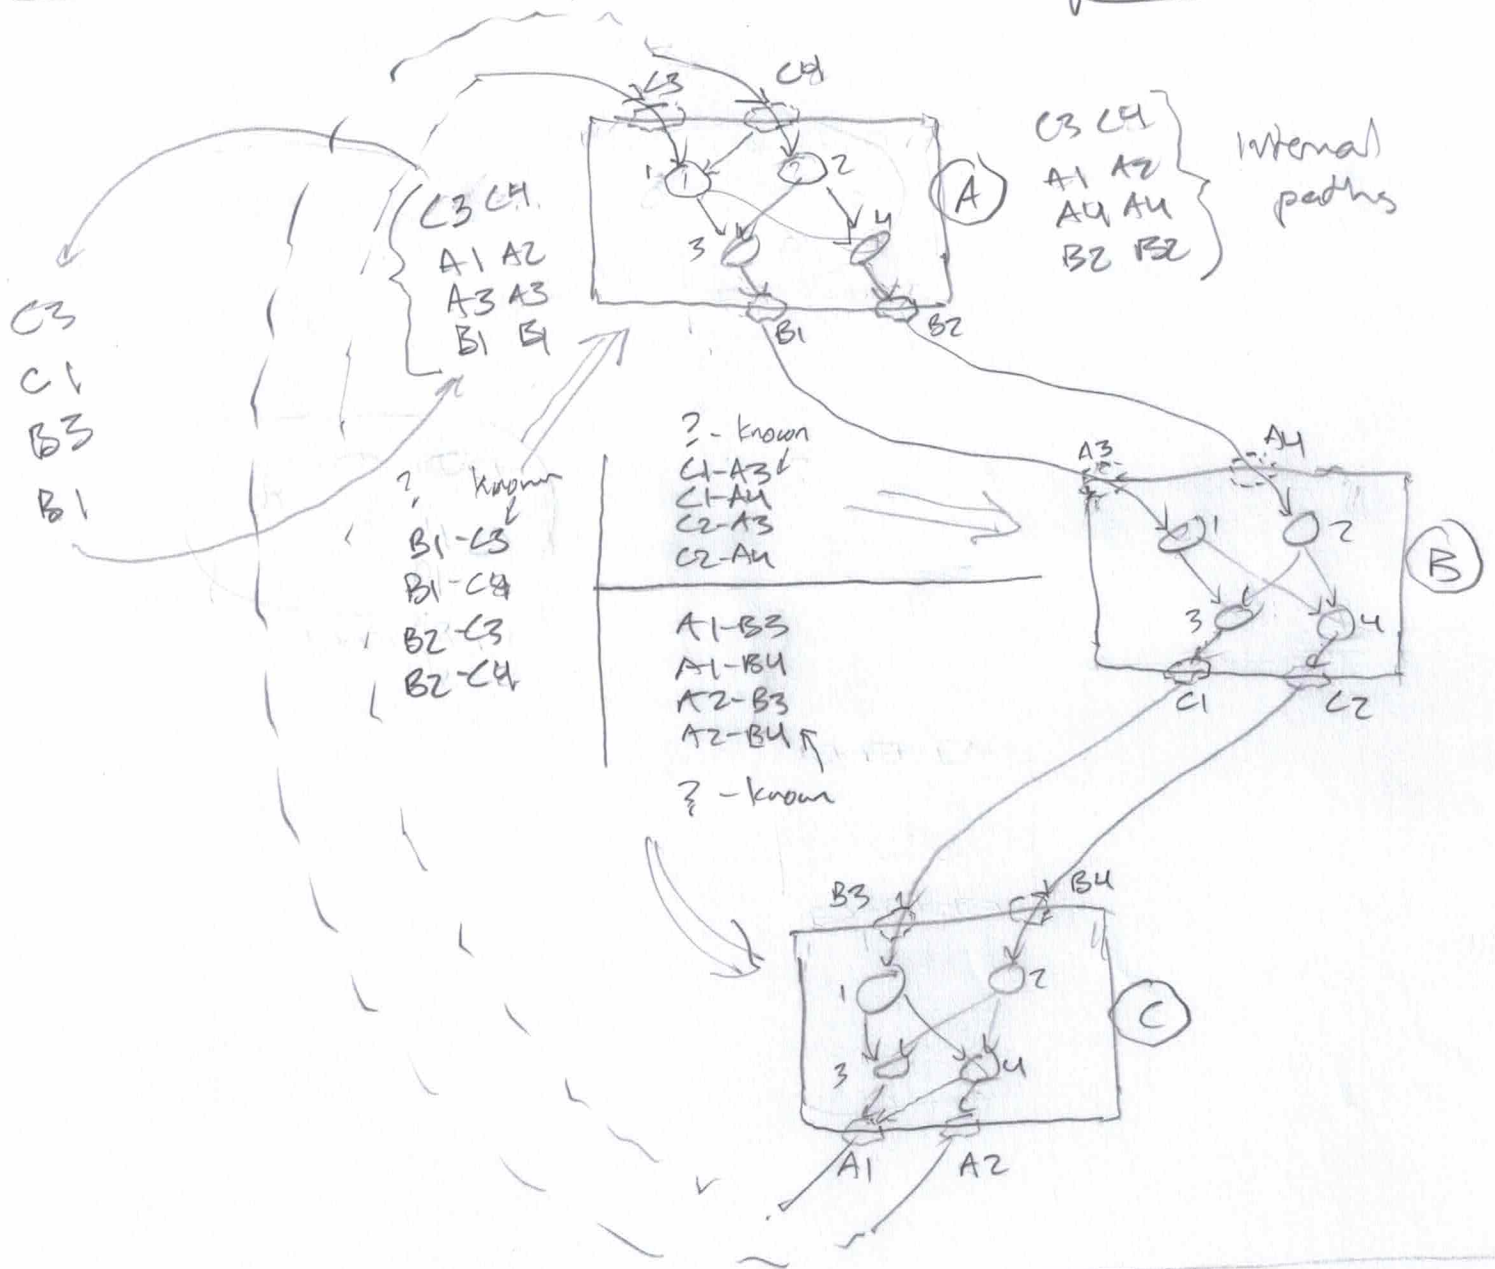 C3
C4
1
1
2
2
3
4
A
B1
B2
C3 C4
A1 A2
A4 A4
B2 B2
internal
paths
C3 C4
A1 A2
A3 A3
B1 B1
C3
C1
B3
B1
? known
B1-C3
B1-C4
B2-C3
B2-C4
? - known
C1-A3
C1-A4
C2-A3
C2-A4
A1-B3
A1-B4
A2-B3
A2-B4
? - known
A3
A4
1
2
3
4
B
C1
C2
B3
B4
1
2
3
4
C
A1
A2